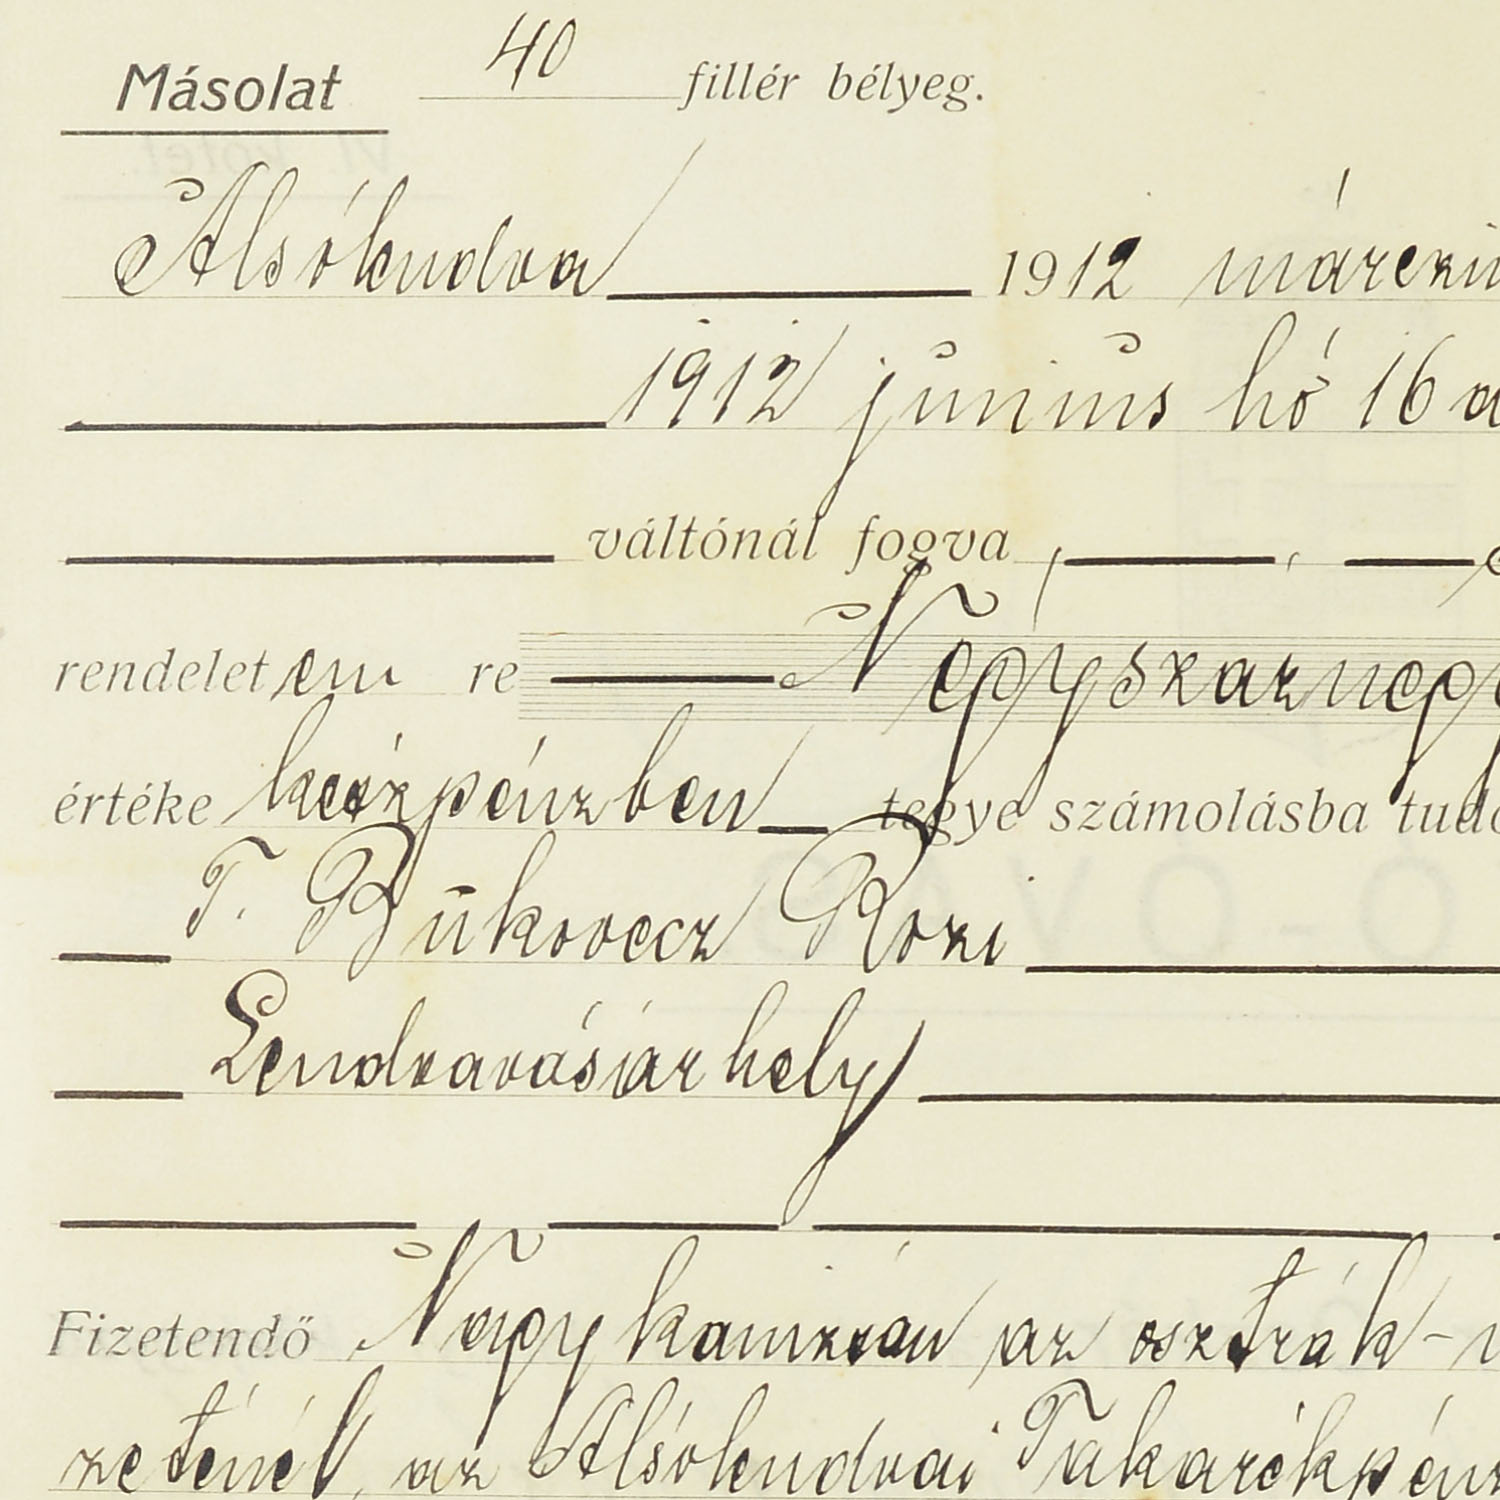 Másolat 40 fillér bélyeg.
Alsólendva 1912 márcziu
1912 június hó 16 a
váltónál fogva
rendelet em re Négyszáznegy
értéke készpénzben tegye számolásba tudó
T. Bukovecz Rozi
Lendvavásárhely
Fizetendő Nagykanizsán az osztrák-
zeténél, az Alsólendvai Takarékpénz